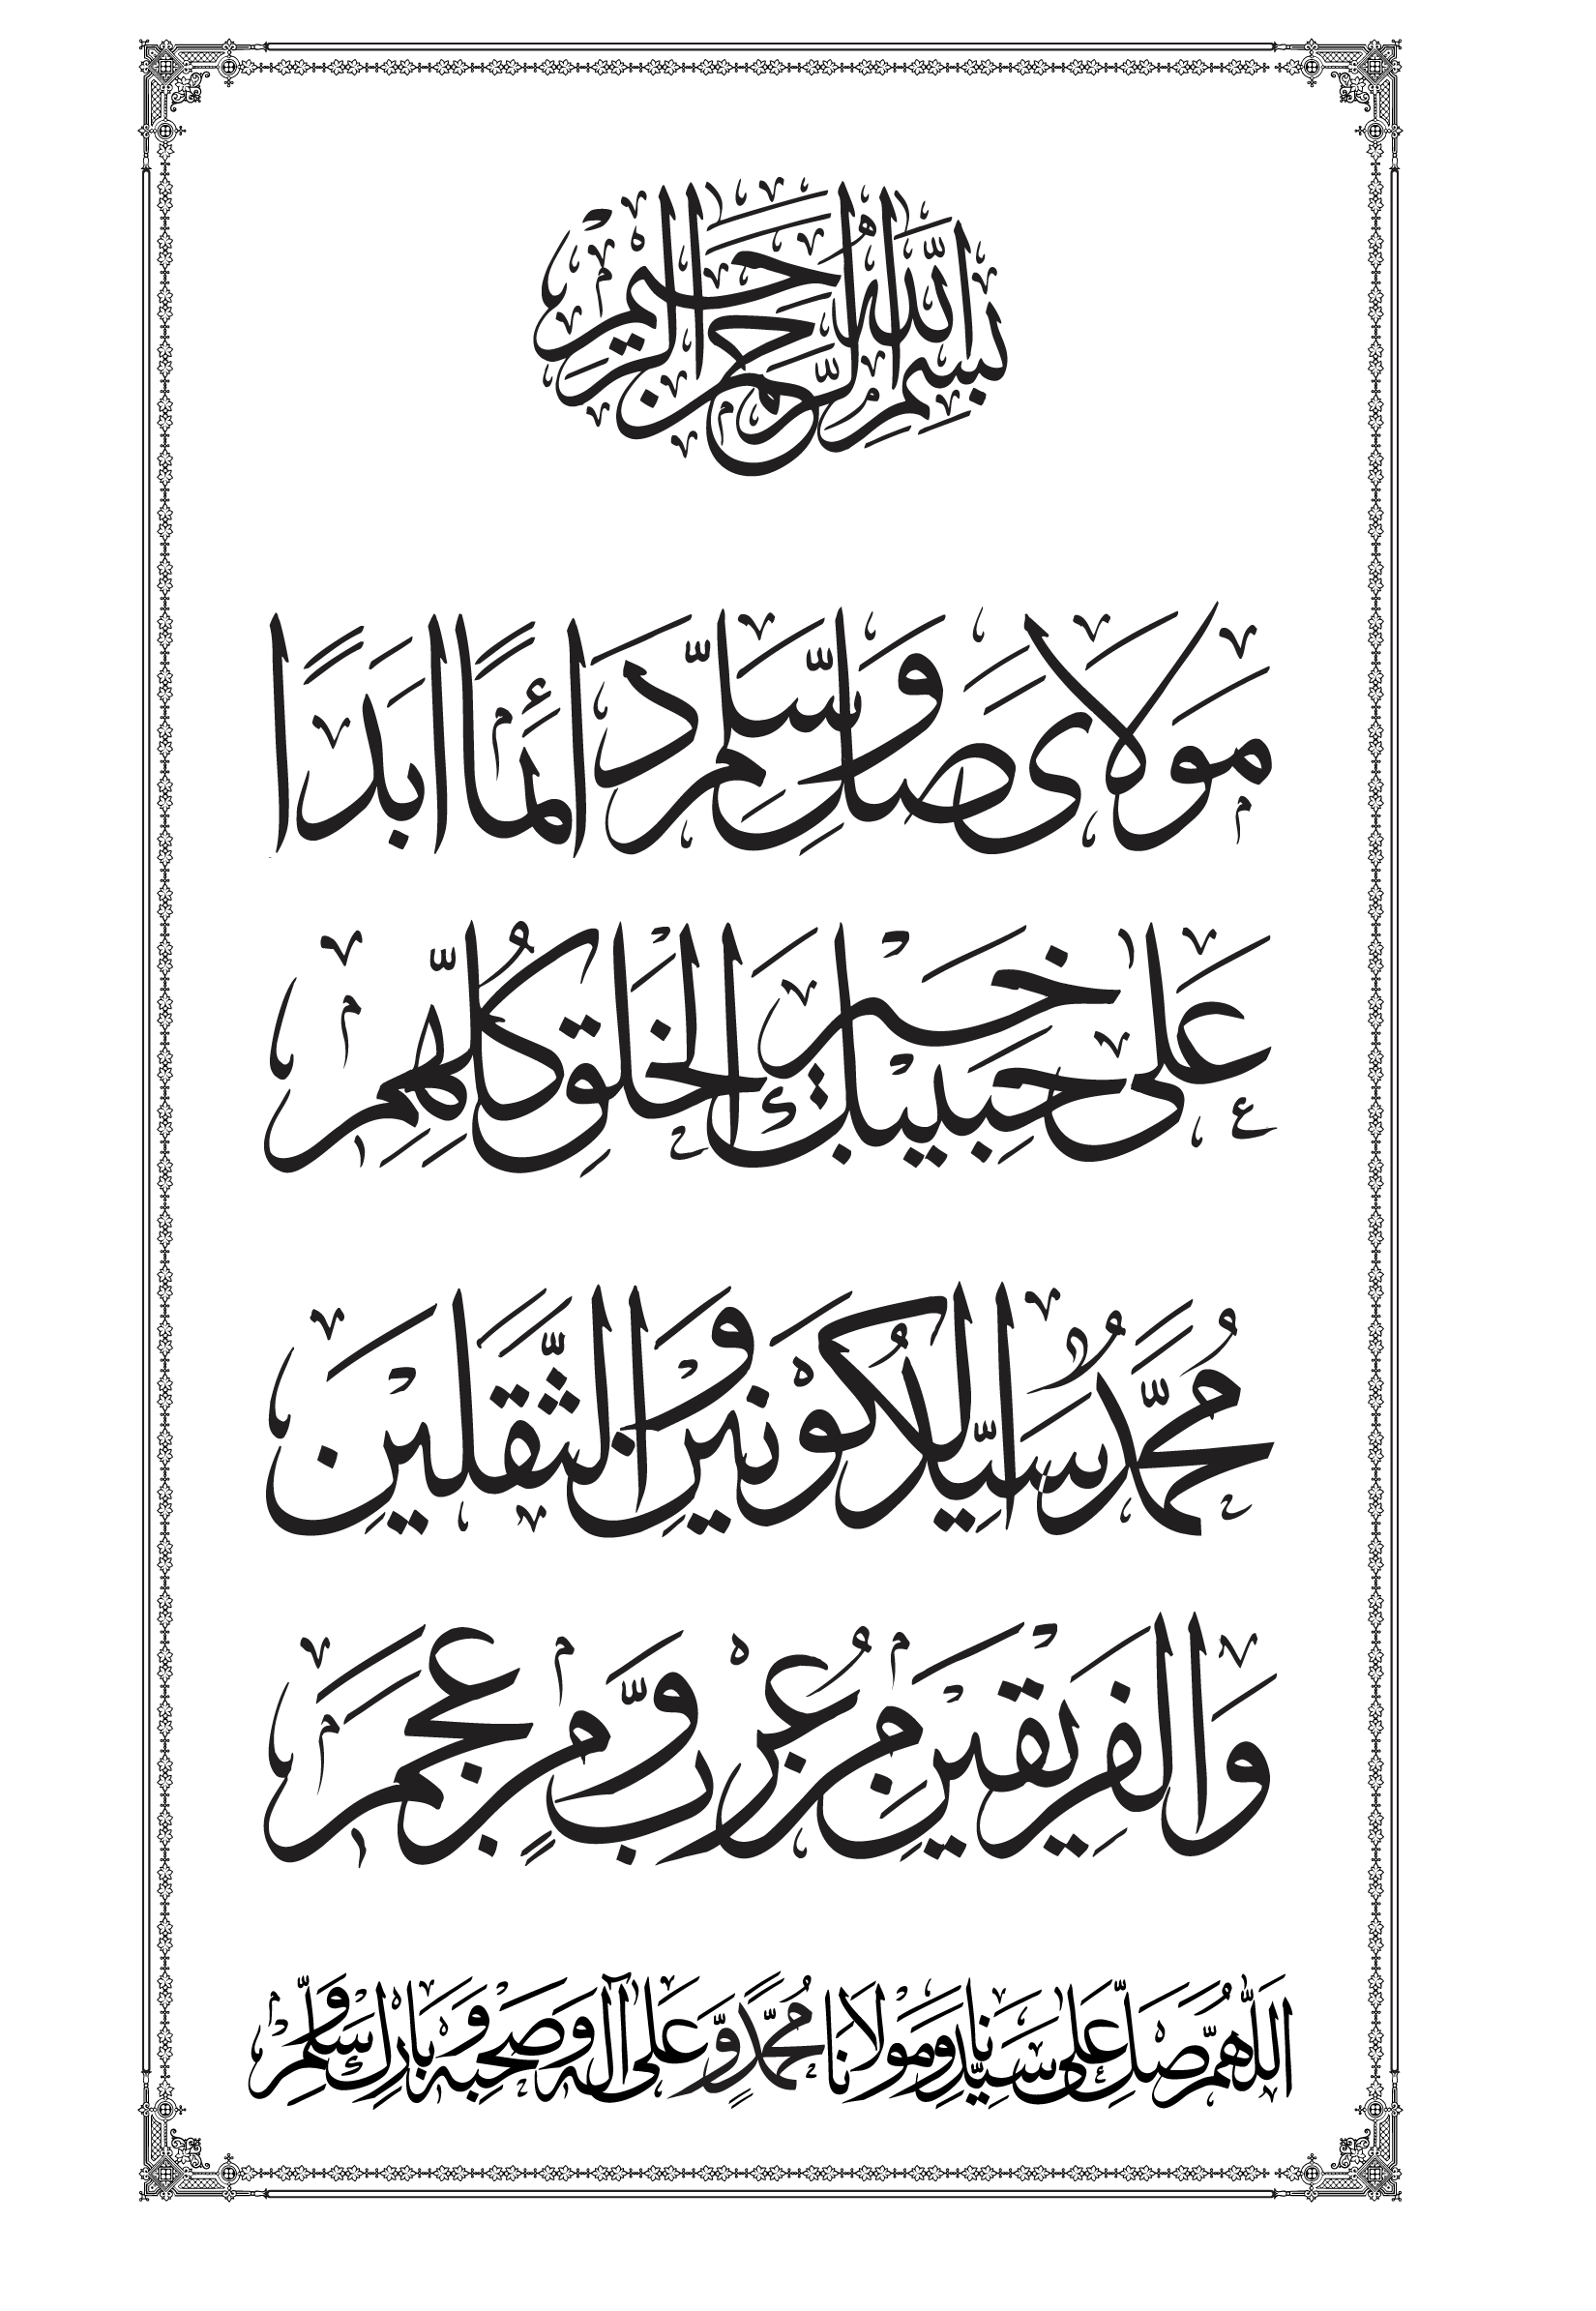 بِسْمِ اللّٰهِ الرَّحْمٰنِ الرَّحِيْمِ
مَوْلَایَ صَلِّ وَسَلِّمْ دَائِمًا اَبَدًا
عَلٰى حَبِيْبِكَ خَيْرِ الْخَلْقِ كُلِّهِمِ
مُحَمَّدٌ سَيِّدُ الْكَوْنَيْنِ وَالثَّقَلَيْنِ
وَالْفَرِيْقَيْنِ مِنْ عُرْبٍ وَّمِنْ عَجَمِ
اَللّٰهُمَّ صَلِّ عَلٰى سَيِّدِنَا وَمَوْلَانَا مُحَمَّدٍ وَّعَلٰى آلِهٖ وَصَحْبِهٖ وَبَارِكْ وَسَلِّمْ